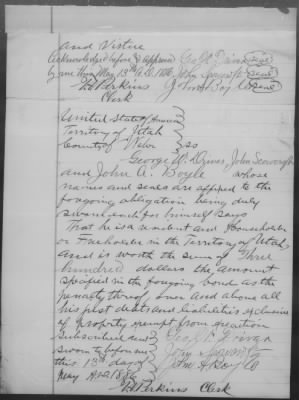 and Virtue
Acknowledged before & approved Geo W Driver seal
by me this May 13th A.D. 1886 John Seaworth seal
H Perkins John A Boyle seal
Clerk
United States of America
Territory of Utah
County of Weber } ss
George W. Driver, John Seaworth
and John A. Boyle whose
names and seals are affixed to the
foregoing obligation being duly
sworn each for himself says
That he is a resident and Householder
or Freeholder in the Territory of Utah,
and is worth the sum of Three
hundred dollars the amount
specified in the foregoing bond as the
penalty thereof over and above all
his just debts and liabilities exclusive
of property exempt from execution
Subscribed and Geo W. Driver
sworn to before me John
this 13th day of John A Boyle
May A.D. 1886
Perkins Clerk